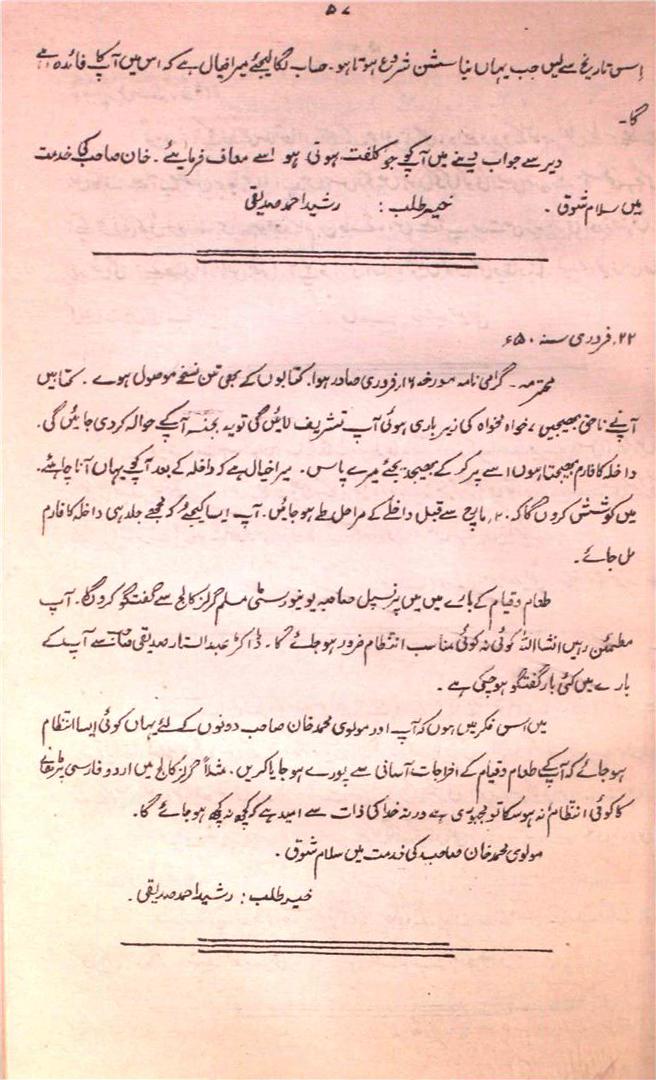 ۵۷
اِسی تاریخ سے لیں جب یہاں نیا سشن شروع ہوتا ہو۔ حساب لگا لیجئے میرا خیال ہے کہ اس میں آپ کا فائدہ ہے
گا۔
دیر سے جواب دینے میں آپکو جو کلفت ہوتی ہو اسے معاف فرمایئے۔ خان صاحب کی خدمت
میں سلام شوق۔ خیر طلب: رشید احمد صدیقی
۲۲، فروری سنہ ۵۰ء
محترمہ۔ گرامی نامہ مورخہ ۱۶، فروری صادر ہوا۔ کتابوں کے بھی تین نسخے موصول ہوے۔ کتابیں
آپنے ناحق بھیجیں، خواہ مخواہ کی زیر باری ہوئی آپ تشریف لائیں گی تو یہ بجنسہ آپکے حوالہ کر دی جائیں گی۔
داخلہ کا فارم بھیجتا ہوں اسے پر کر کے بھیجدیجئے میرے پاس۔ میرا خیال ہے کہ داخلہ کے بعد آپکو یہاں آنا چاہئے۔
میں کوشش کروں گا کہ ۲۰، مارچ سے قبل داخلے کے مراحل طے ہو جائیں۔ آپ ایسا کیجئے کہ مجھے جلد ہی داخلہ کا فارم
مل جائے۔
طعام و قیام کے بارے میں میں پرنسپل صاحبہ یونیورسٹی مسلم گرلز کالج سے گفتگو کروں گا۔ آپ
مطمئن رہیں انشاءاللہ کوئی نہ کوئی مناسب انتظام ضرور ہو جائے گا۔ ڈاکٹر عبدالستار صدیقی صاحب سے آپ کے
بارے میں کئی بار گفتگو ہو چکی ہے۔
میں اسی فکر میں ہوں کہ آپ اور مولوی محمد خان صاحب دونوں کے لئے یہاں کوئی ایسا انتظام
ہو جائے کہ آپکے طعام و قیام کے اخراجات آسانی سے پورے ہو جایا کریں۔ مثلاً گرلز کالج میں اردو فارسی پڑھانے
کا کوئی انتظام نہ ہو سکا تو مجبوری ہے ورنہ خدا کی ذات سے امید ہے کہ کچھ نہ کچھ ہو جائے گا۔
مولوی محمد خان صاحب کی خدمت میں سلام شوق۔
خیر طلب: رشید احمد صدیقی۔